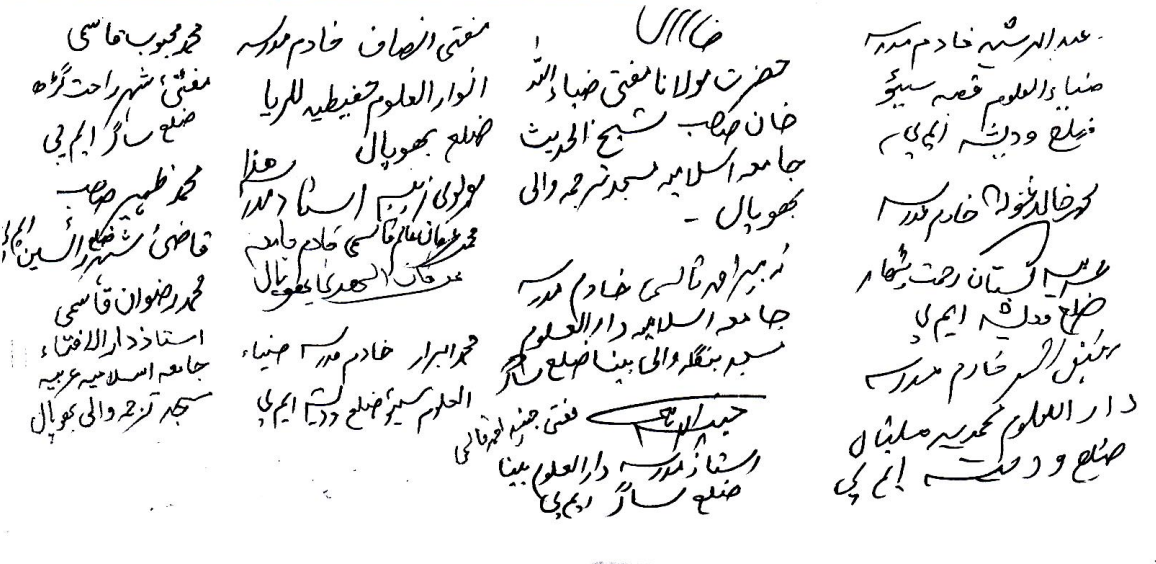 عبدالرشید خادم مدرسہ
ضیاء العلوم قصبہ سیئو
ضلع ودیشہ ایم پی
محمد خالد خادم مدرسہ
عربیہ گلستان رحمت
ضلع ودیشہ ایم پی
خادم مدرسہ
دار العلوم محمدیہ
ضلع ودیشہ ایم پی
حضرت مولانا مفتی ضیاء اللہ
خان صاحب شیخ الحدیث
جامعہ اسلامیہ مسجد ترجمہ والی
بھوپال -
زبیر احمد قاسمی خادم مدرسہ
جامعہ اسلامیہ دار العلوم
مسجد بنگلہ والی بینا ضلع ساگر
مفتی جنید احمد قاسمی
استاذ مدرسہ دار العلوم بینا
ضلع ساگر ایم پی
مفتی انصاف خادم مدرسہ
انوار العلوم
ضلع بھوپال
مولوی زبیر استاد مدرسہ ھذا
محمد عرفان عالم قاسمی خادم جامعہ
بھوپال
محمد ابرار خادم مدرسہ ضیاء
العلوم سیئو ضلع ودیشہ ایم پی
محمد محبوب قاسمی
مفتئ شہر راحت گڑھ
ضلع ساگر ایم پی
محمد ظہیر صاحب
قاضئ شہر ضلع رائسین ایم پی
محمد رضوان قاسمی
استاذ دار الافتاء
جامعہ اسلامیہ عربیہ
مسجد ترجمہ والی بھوپال